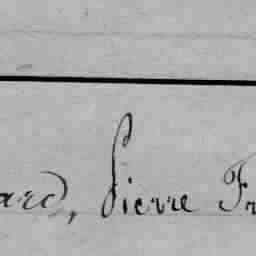 ard, Pierre Fr